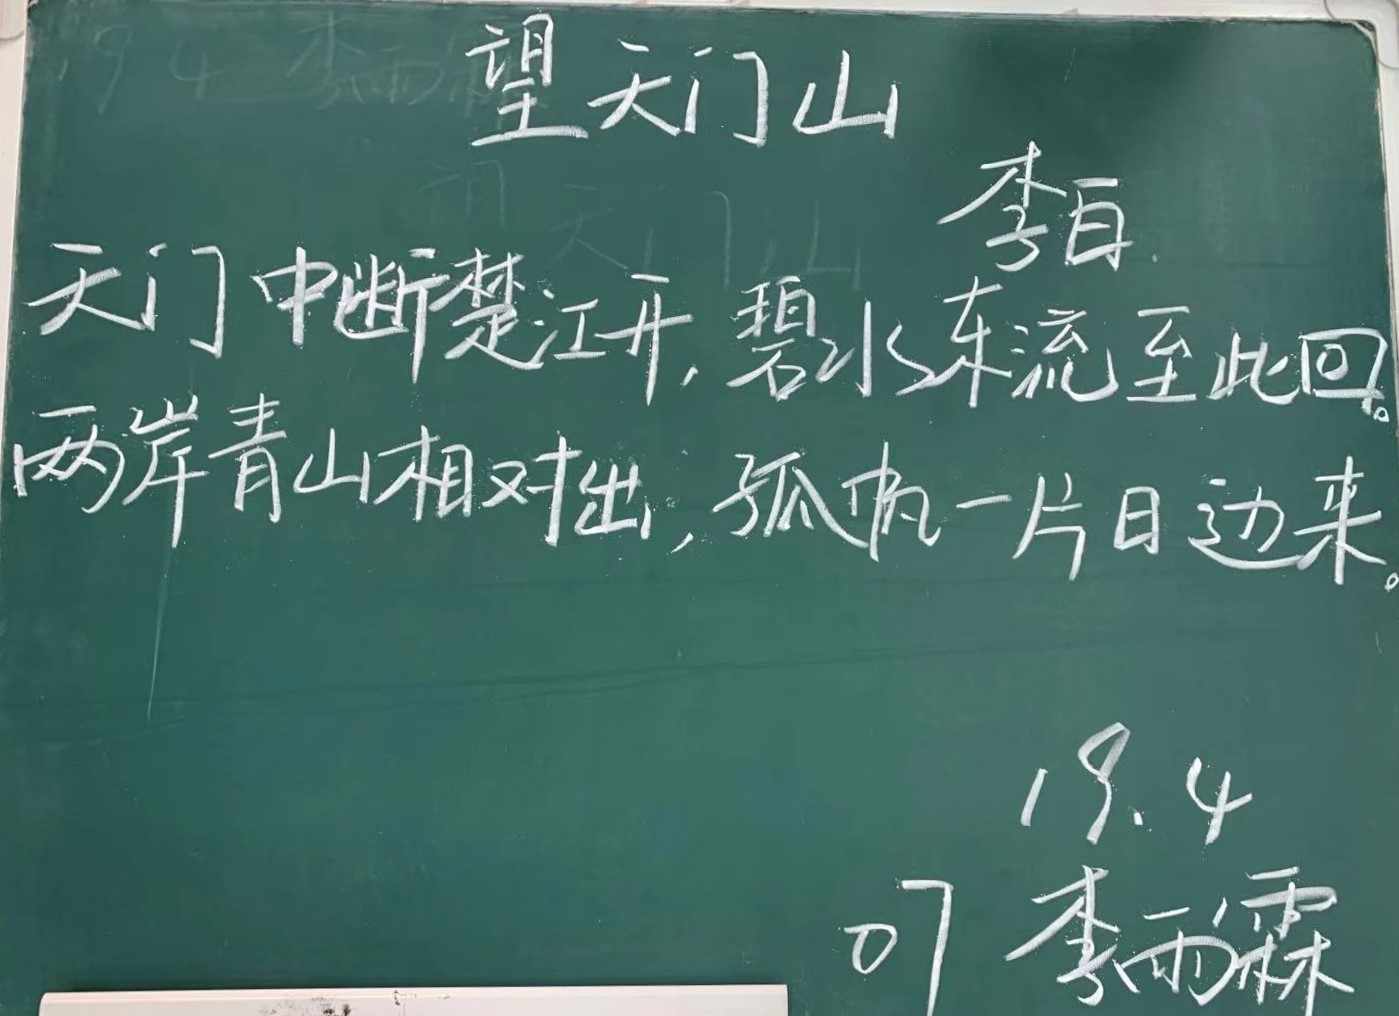 望天门山
李白
天门中断楚江开，碧水东流至此回。
两岸青山相对出，孤帆一片日边来。
19.4
07 李雨霖